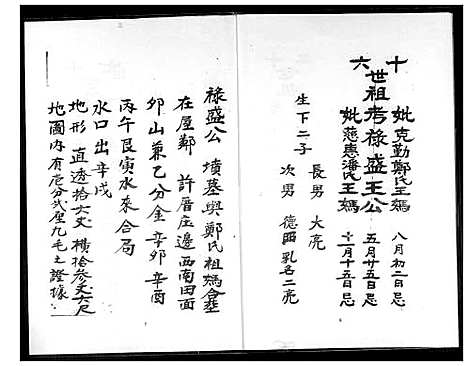 十六世祖考祿盛王公 五月廿五日忌
妣克勤鄭氏王媽 八月初二日忌
妣慈惠潘氏王媽 十二月十五日忌
生下二子 長男 大亮
次男 德 乳名二亮
祿盛公 墳墓與鄭氏祖媽合塟
在屋鄞 許厝庄邊西南田面
卯山兼乙分金辛卯辛酉
丙午艮寅水來合局
水口出辛戌
地形 直透拾六丈 橫拾參丈六尺
地圖內有 分弍厘九毛之證據